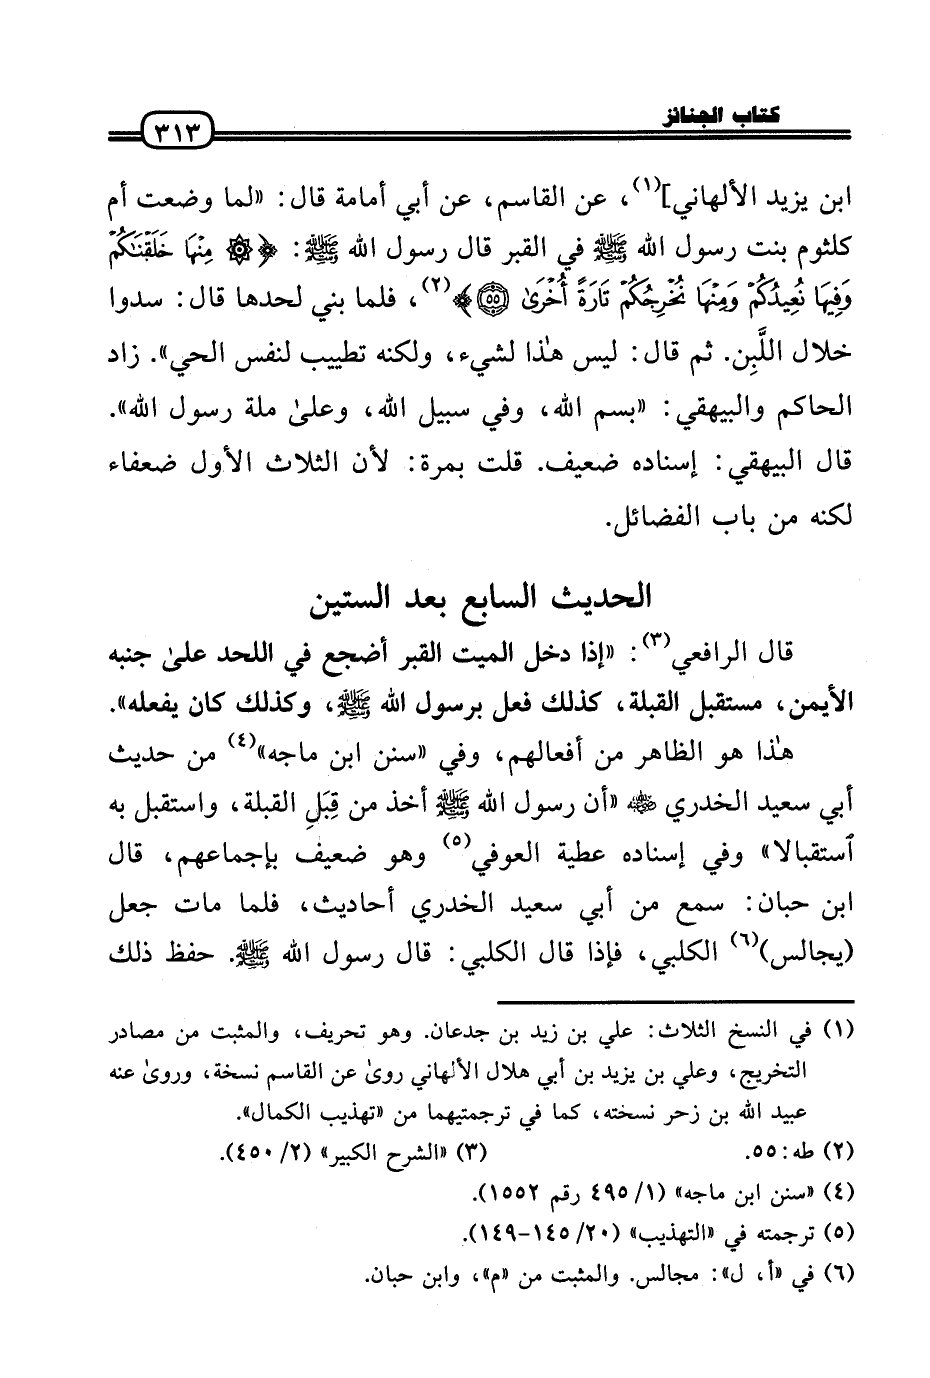 كتاب الجنائز
٣١٣
ابن يزيد الألهاني](١)، عن القاسم، عن أبي أمامة قال: «لما وضعت أم
كلثوم بنت رسول الله ﷺ في القبر قال رسول الله ﷺ: ﴿۞ مِنْهَا خَلَقْنَٰكُمْ
وَفِيهَا نُعِيدُكُمْ وَمِنْهَا نُخْرِجُكُمْ تَارَةً أُخْرَىٰ ۝٥٥﴾(٢)، فلما بني لحدها قال: سدوا
خلال اللَّبِن. ثم قال: ليس هٰذا لشيء، ولكنه تطييب لنفس الحي». زاد
الحاكم والبيهقي: «بسم الله، وفي سبيل الله، وعلىٰ ملة رسول الله».
قال البيهقي: إسناده ضعيف. قلت بمرة: لأن الثلاث الأول ضعفاء
لكنه من باب الفضائل.
الحديث السابع بعد الستين
قال الرافعي(٣): «إذا دخل الميت القبر أضجع في اللحد علىٰ جنبه
الأيمن، مستقبل القبلة، كذلك فعل برسول الله ﷺ، وكذلك كان يفعله».
هٰذا هو الظاهر من أفعالهم، وفي «سنن ابن ماجه»(٤) من حديث
أبي سعيد الخدري ﷺ «أن رسول الله ﷺ أخذ من قِبَلِ القبلة، واستقبل به
ٱستقبالا» وفي إسناده عطية العوفي(٥) وهو ضعيف بإجماعهم، قال
ابن حبان: سمع من أبي سعيد الخدري أحاديث، فلما مات جعل
(يجالس)(٦) الكلبي، فإذا قال الكلبي: قال رسول الله ﷺ. حفظ ذلك
(١) في النسخ الثلاث: علي بن زيد بن جدعان. وهو تحريف، والمثبت من مصادر
التخريج، وعلي بن يزيد بن أبي هلال الألهاني روىٰ عن القاسم نسخة، وروىٰ عنه
عبيد الله بن زحر نسخته، كما في ترجمتيهما من «تهذيب الكمال».
(٢) طه: ٥٥. (٣) «الشرح الكبير» (٢/ ٤٥٠).
(٤) «سنن ابن ماجه» (١/ ٤٩٥ رقم ١٥٥٢).
(٥) ترجمته في «التهذيب» (٢٠/ ١٤٥-١٤٩).
(٦) في «أ، ل»: مجالس. والمثبت من «م»، وابن حبان.